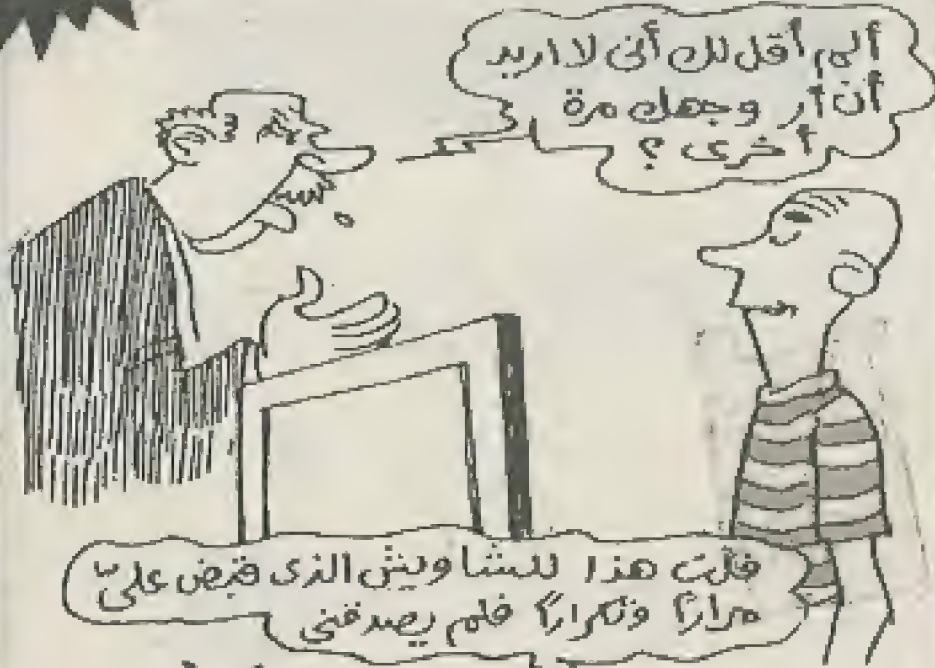 ألم أقل لك أنى لا اريد
أن أر وجهك مرة
أخرى ؟
قلت هذا للشاويش الذى قبض علىّ
مرارًا وتكرارًا فلم يصدقنى